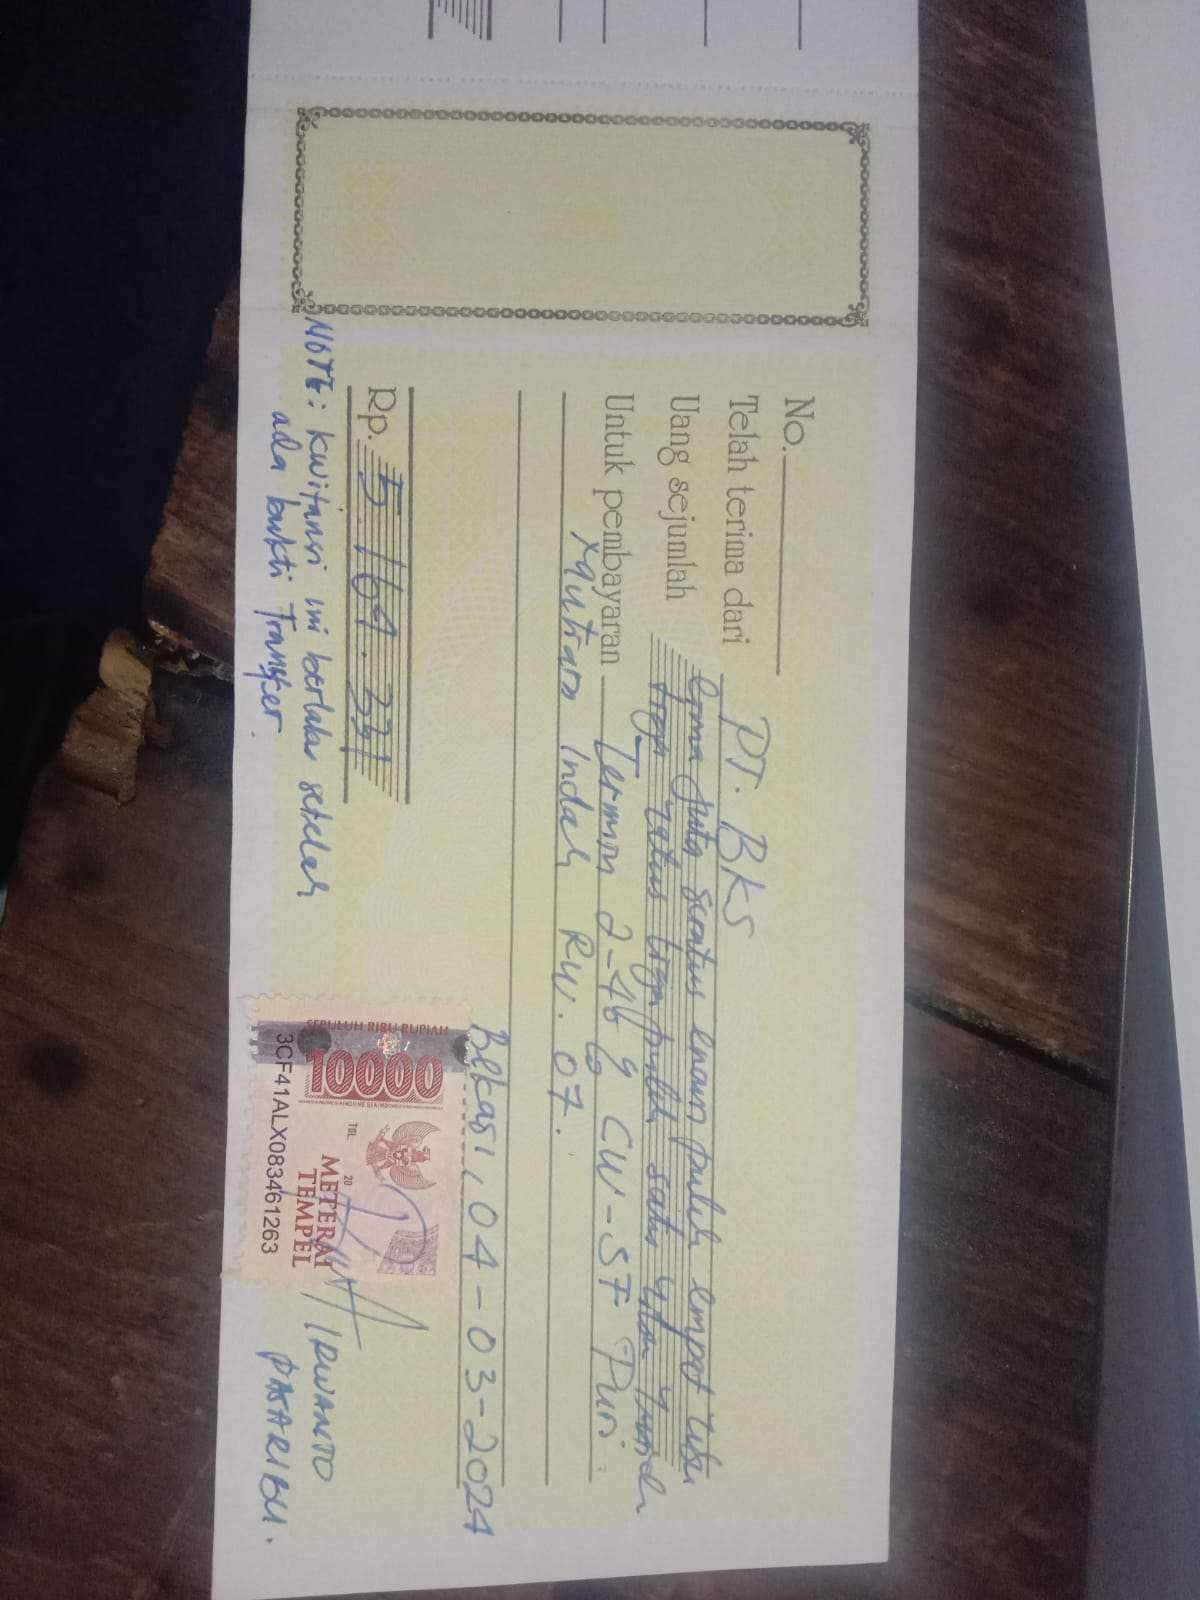 No.
Telah terima dari PT. BKS
Uang sejumlah lima juta seratus enam puluh empat ribu
tiga ratus tiga puluh satu
Untuk pembayaran Termin 2-4b CW-SF Puri
Mutiara Indah RW. 07.
Bekasi, 04-03-2024
Rp. 5.164.331
NOTE: kwitansi ini berlaku setelah
ada bukti Transfer.
SEPULUH RIBU RUPIAH
10000
TGL. 20
METERAI
TEMPEL
3CF41ALX083461263
IRWANTO
PASARIBU.